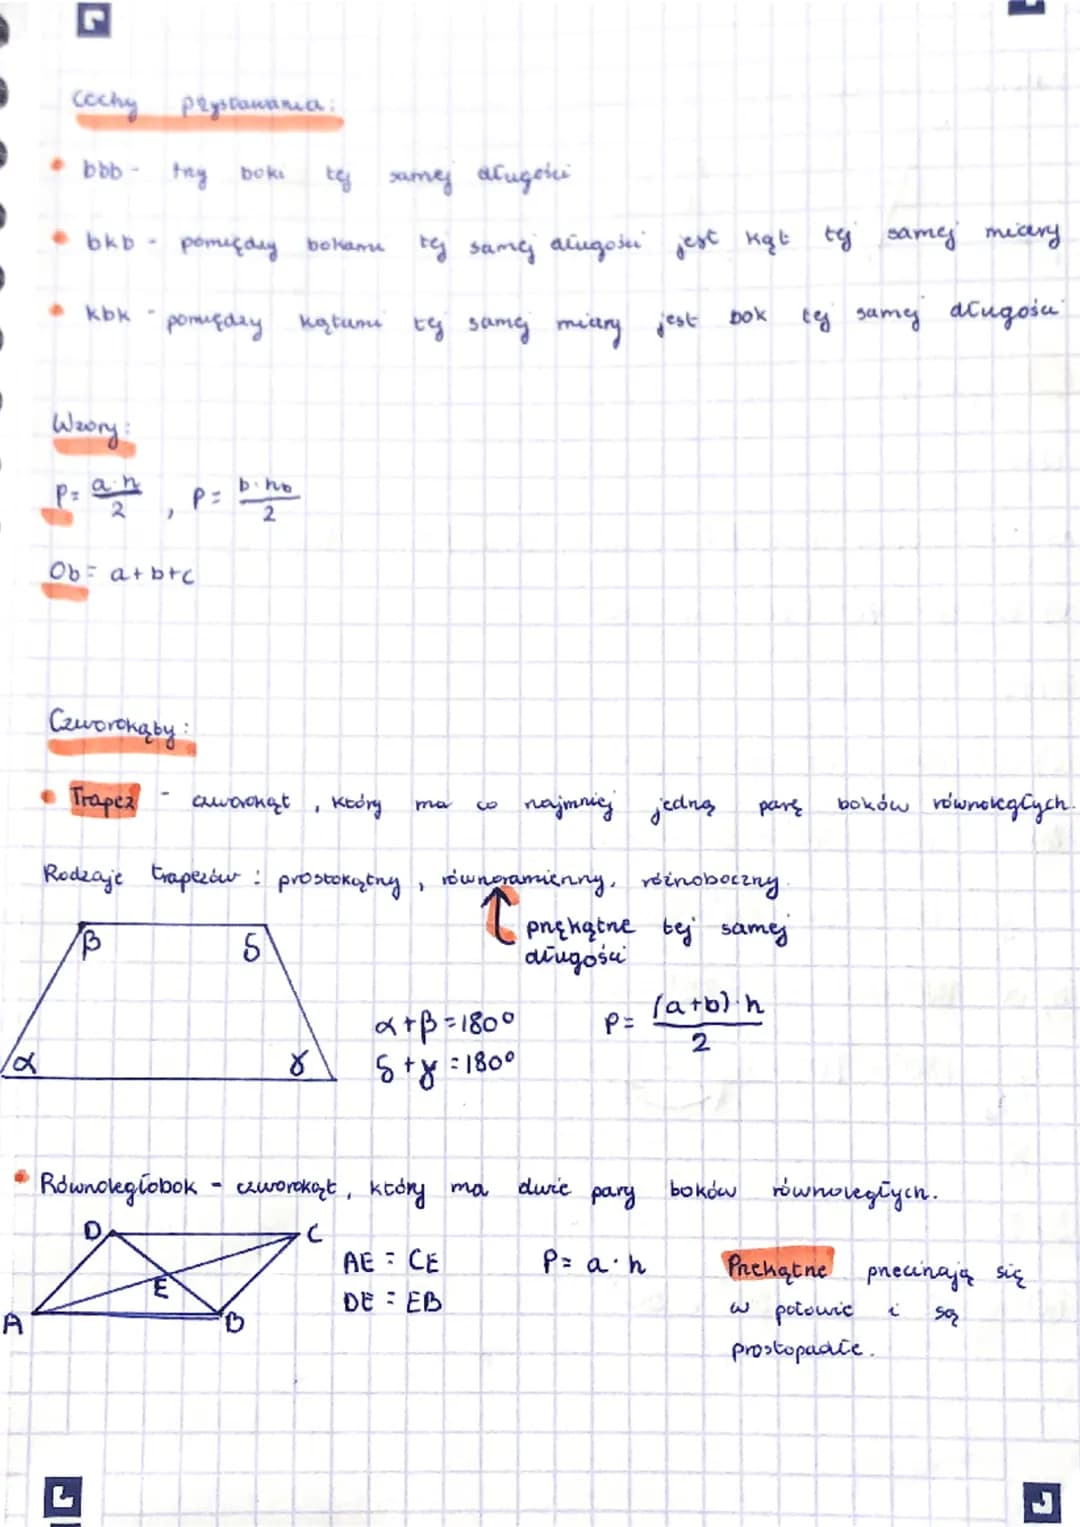 Cechy przystawania:
• bbb - trzy boki tej samej długości
• bkb - pomiędzy bokami tej samej długości jest kąt tej samej miary
• kbk - pomiędzy kątami tej samej miary jest bok tej samej długości
Wzory:
P= a·h/2 , P= b·hb/2
Ob= a+b+c
Czworokąty:
• Trapez - czworokąt, który ma co najmniej jedną parę boków równoległych.
Rodzaje trapezów: prostokątny, równoramienny, różnoboczny.
przekątne tej samej
długości
β δ
α+β=180° P= (a+b)·h/2
α γ δ+γ=180°
• Równoległobok - czworokąt, który ma dwie pary boków równoległych.
D C
AE = CE P= a·h Przekątne przecinają się
E DE = EB w połowie i są
A B
prostopadłe.